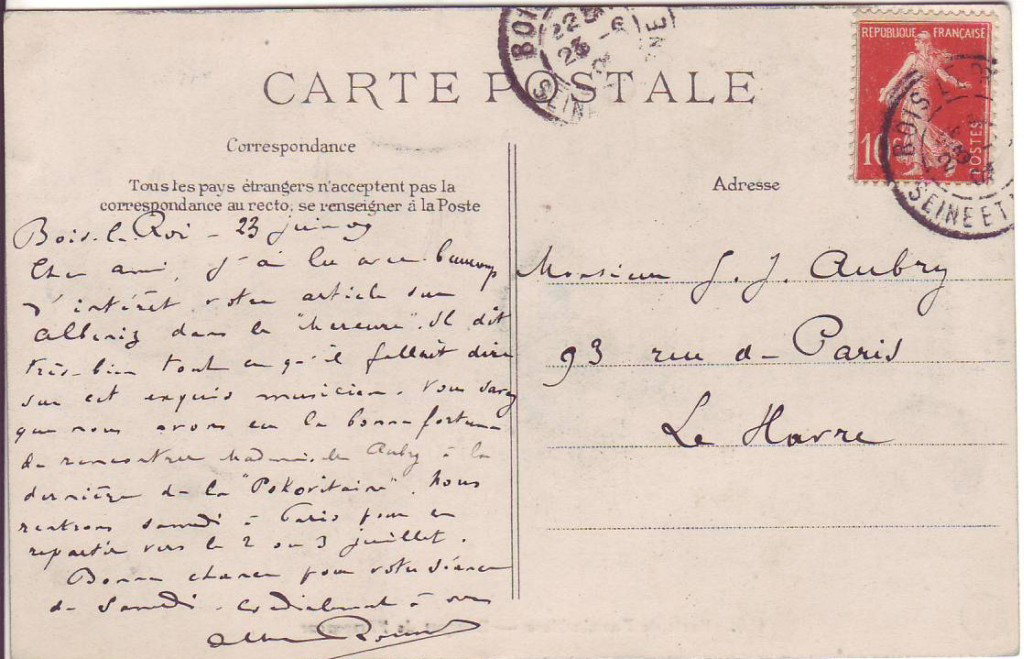 CARTE POSTALE
BOI
22 5
23 -6
SEINE
NE
RÉPUBLIQUE FRANÇAISE
10
POSTES
BOIS LE
23
SEINE ET
Correspondance
Tous les pays étrangers n'acceptent pas la
correspondance au recto, se renseigner à la Poste
Adresse
Bois-le-Roi - 23 juin 09
Cher ami, j'ai lu avec beaucoup
d'intérêt votre article sur
Albeniz dans le "Mercure". Il dit
très bien tout ce qu'il fallait dire
sur cet exquis musicien. Vous savez
que nous avons eu la bonne fortune
de rencontrer Madame de Aubry à la
dernière de la "Pskovitaine". Nous
rentrons samedi à Paris pour en
repartir vers le 2 ou 3 juillet.
Bonne chance pour votre séance
de samedi. Cordialement à vous
Albert
Monsieur G. J. Aubry
93 rue de Paris
Le Havre